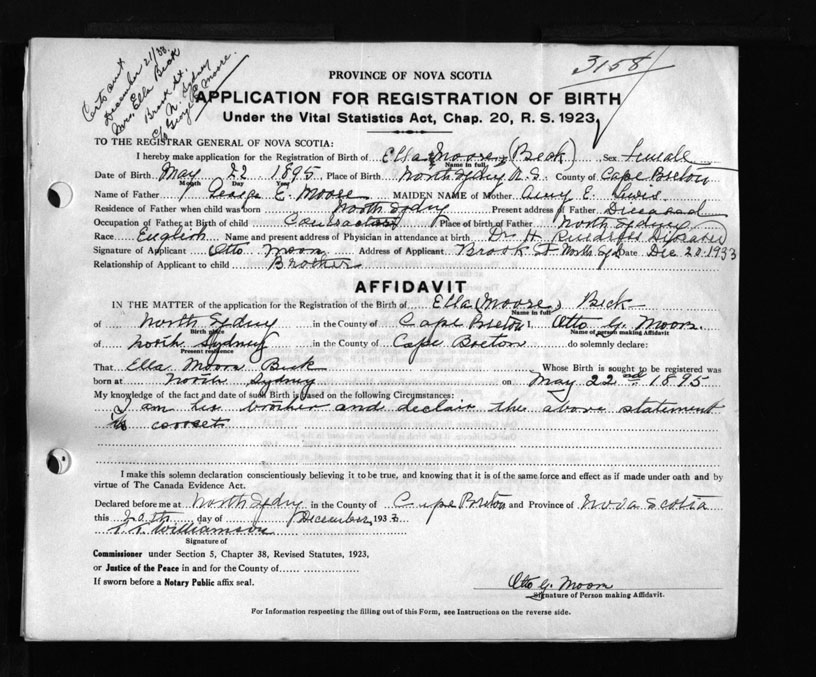 3158
Certs sent
December 21/33.
Mrs. Ella Beck
Brook St.
N. Sydney
c/o George E. Moore.
PROVINCE OF NOVA SCOTIA
APPLICATION FOR REGISTRATION OF BIRTH
Under the Vital Statistics Act, Chap. 20, R. S. 1923,
TO THE REGISTRAR GENERAL OF NOVA SCOTIA:
I hereby make application for the Registration of Birth of Ella Moore, (Beck) Sex Female
Name in full
Date of Birth May 22 1895, Place of Birth North Sydney N.S. County of Cape Breton
Month Day Year
Name of Father George E. Moore MAIDEN NAME of Mother Amy E. Lewis
Residence of Father when child was born North Sydney Present address of Father Deceased
Occupation of Father at Birth of child Contractor Place of birth of Father North Sydney
Race English Name and present address of Physician in attendance at birth Dr H. Deceased
Signature of Applicant Otto Moore Address of Applicant Brook St North Syd Date Dec 20. 1933
Relationship of Applicant to child Brother
AFFIDAVIT
IN THE MATTER of the application for the Registration of the Birth of Ella (Moore) Beck
Name in full
of North Sydney in the County of Cape Breton: Otto G. Moore.
Birth place Name of person making Affidavit
of North Sydney in the County of Cape Breton do solemnly declare:
Present residence
That Ella Moore Beck Whose Birth is sought to be registered was
born at North Sydney on May 22nd 1895
My knowledge of the fact and date of such Birth is based on the following Circumstances:
I am her brother and declair the above statement
is correct
I make this solemn declaration conscientiously believing it to be true, and knowing that it is of the same force and effect as if made under oath and by
virtue of The Canada Evidence Act.
Declared before me at North Sydney in the County of Cape Breton and Province of Nova Scotia
this 20th day of December, 1933
Williamson
Signature of
Commissioner under Section 5, Chapter 38, Revised Statutes, 1923,
or Justice of the Peace in and for the County of
If sworn before a Notary Public affix seal.
Otto G. Moore
Signature of Person making Affidavit.
For Information respecting the filling out of this Form, see Instructions on the reverse side.